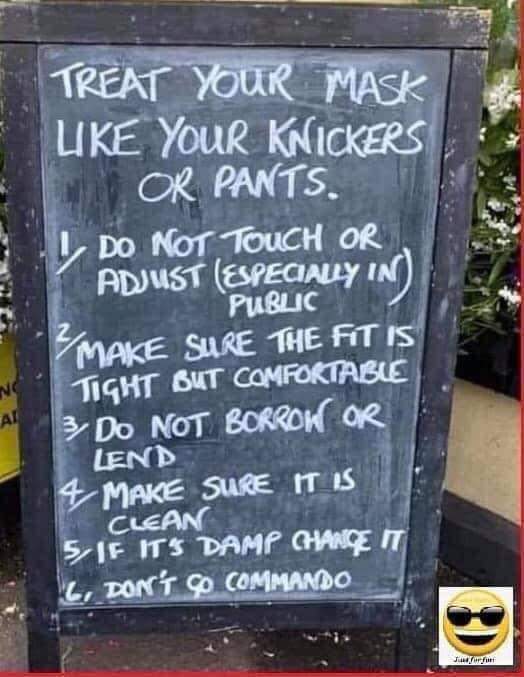 TREAT YOUR MASK
LIKE YOUR KNICKERS
OR PANTS.
1, DO NOT TOUCH OR
ADJUST (ESPECIALLY IN)
PUBLIC
2, MAKE SURE THE FIT IS
TIGHT BUT COMFORTABLE
3, DO NOT BORROW OR
LEND
4, MAKE SURE IT IS
CLEAN
5, IF IT'S DAMP CHANGE IT
6, DON'T GO COMMANDO
Just for fun